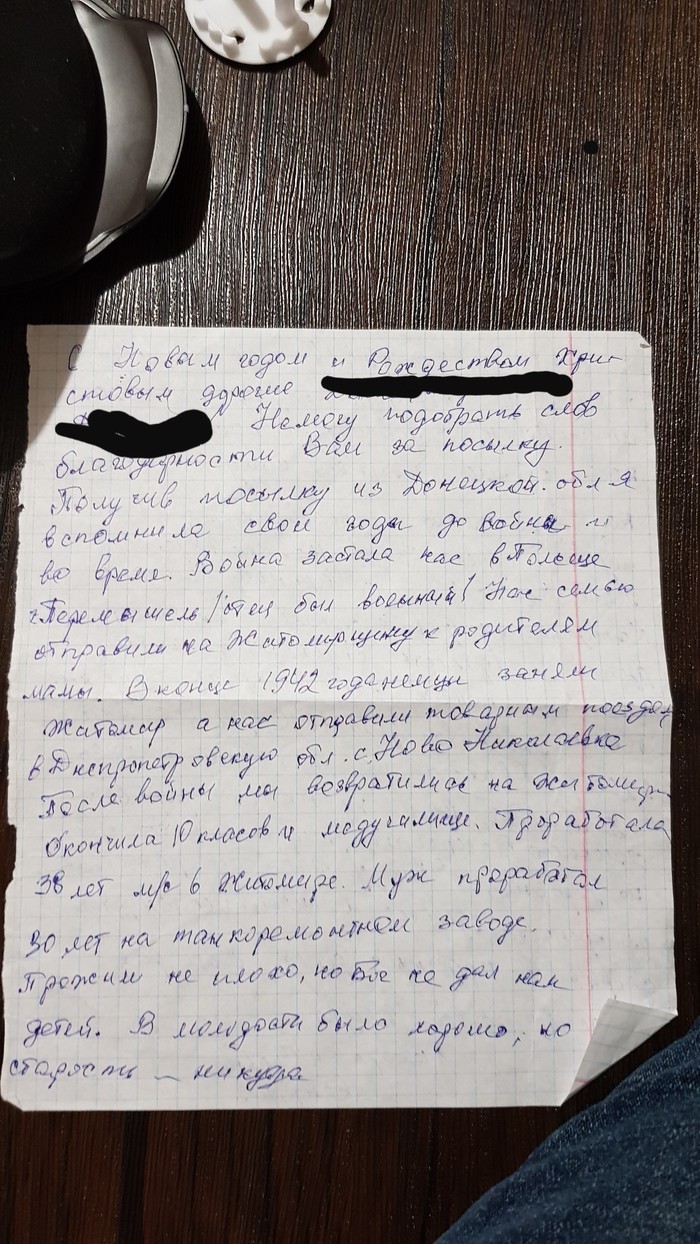 С Новым годом и Рождеством Хри-
стовым дорогие
Немогу подобрать слов
благодарности Вам за посылку.
Получив посылку из Донецкой обл я
вспомнила свои года до войны и
во время. Война застала нас в Польше
г Перемышель /отец был военный/ Нас семью
отправили на Житомирщину к родителям
мамы. В конце 1942 года немцы заняли
Житомир а нас отправили товарным поездом
в Днепропетровскую обл. с. Ново Николаевка
После войны мы возвратились на
Окончила 10 класов и медучилище. Проработала
38 лет м/с в Житомире. Муж проработал
30 лет на танкоремонтном заводе.
Прожили не плохо, но Бог не дал нам
детей. В молодости было хорошо, но
старость — никудаа